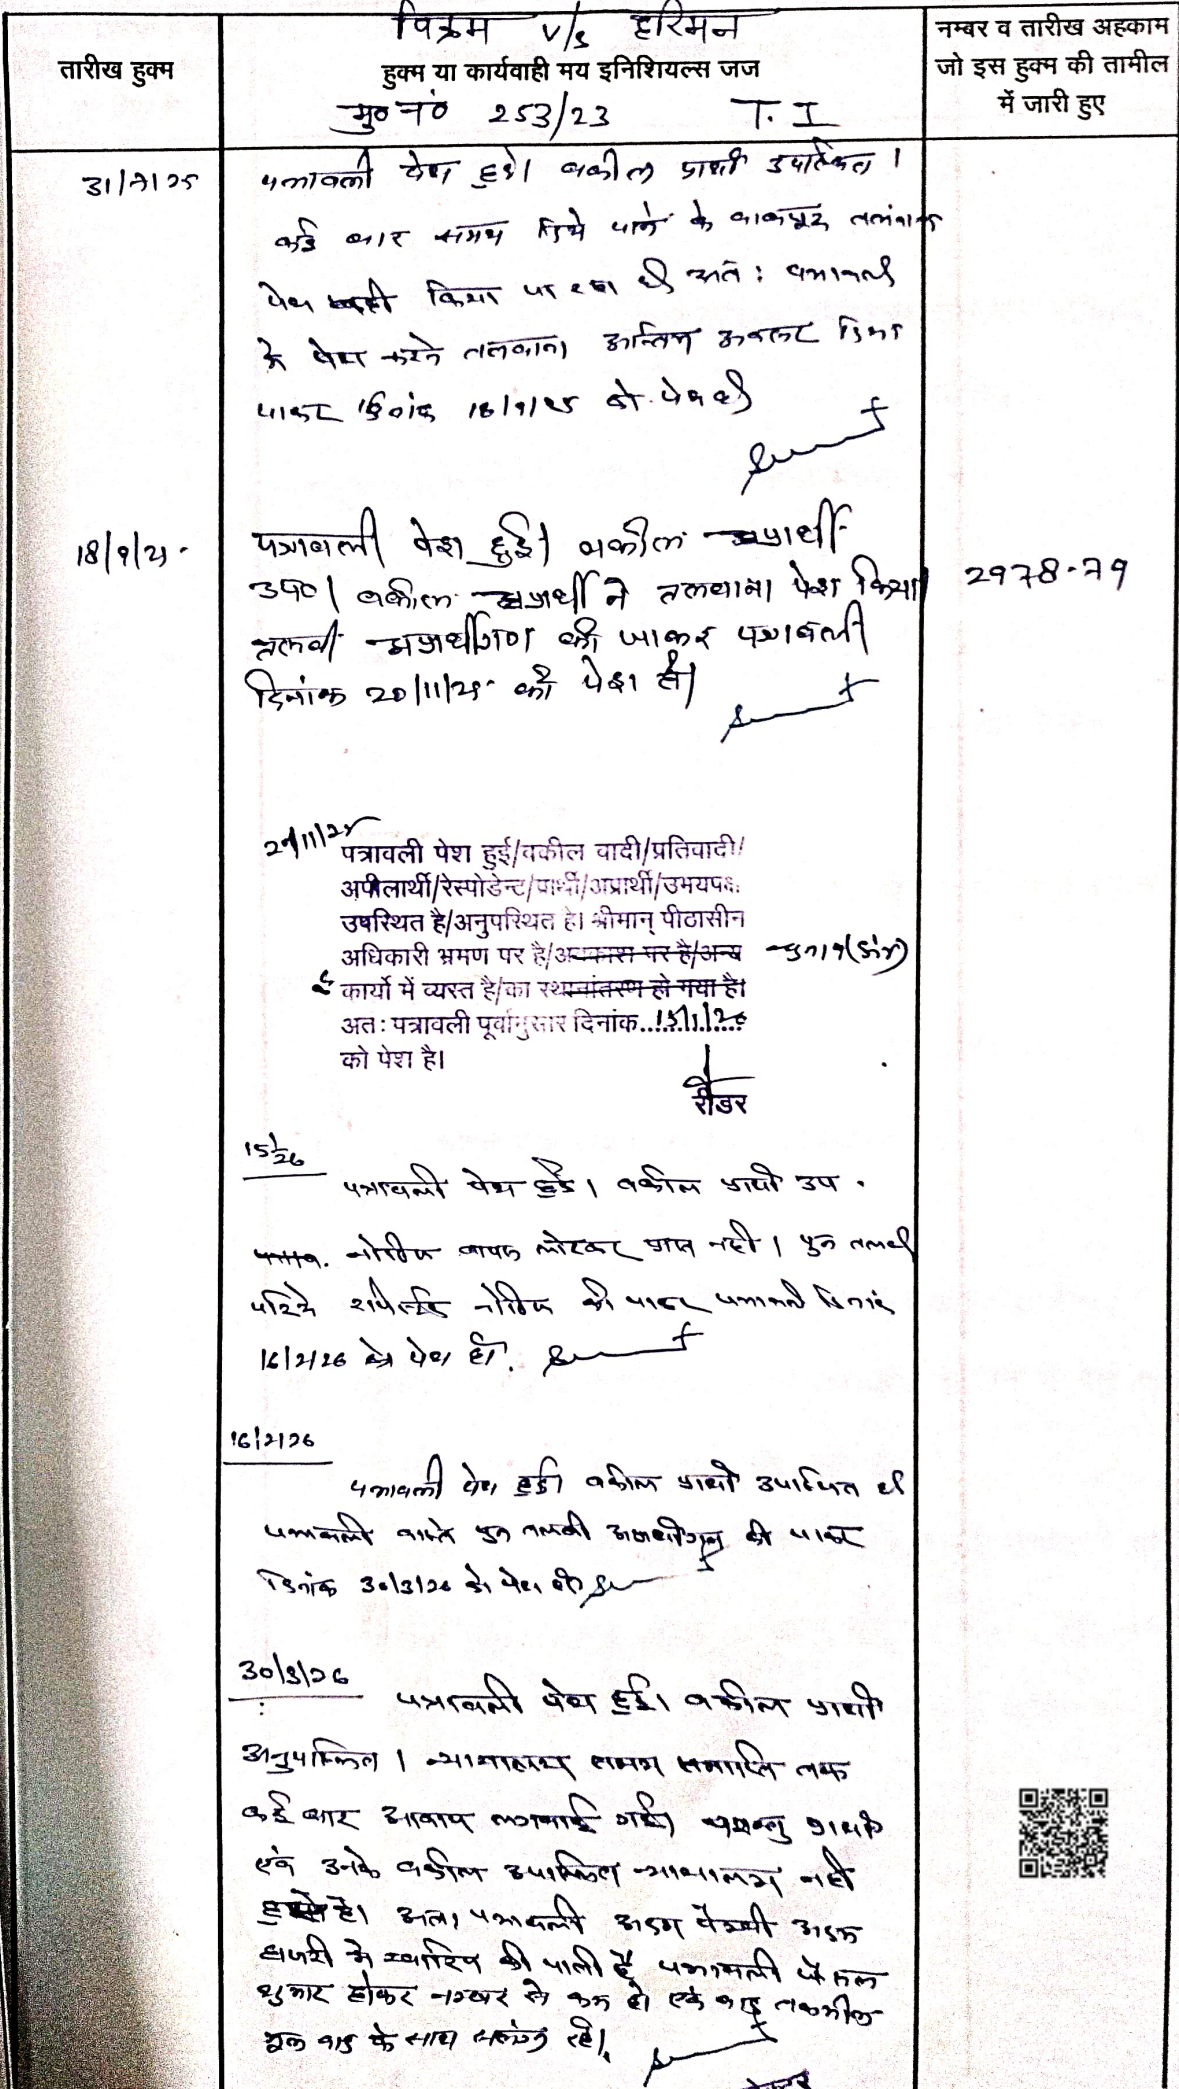 विक्रम v/s हरिमन
तारीख हुक्म
हुक्म या कार्यवाही मय इनिशियल्स जज
नम्बर व तारीख अहकाम
जो इस हुक्म की तामील
में जारी हुए
मु० नं० 253/23 T. I
31/7/25
पत्रावली पेश हुई। वकील प्रार्थी उपस्थित।
कई बार समय दिये जाने के बावजूद तलवाना
पेश नही किया जा रहा है अतः पत्रावली
पेश करने तलवाना अन्तिम अवसर दिया
जाकर दिनांक 18/9/25 को पेश हो
18/9/25
पत्रावली पेश हुई। वकील प्रार्थी
उप०। वकील प्रार्थी ने तलवाना पेश किया
2978-79
तलबी अप्रार्थीगण की जाकर पत्रावली
दिनांक 20/11/25 को पेश हो।
20/11/25
पत्रावली पेश हुई/वकील वादी/प्रतिवादी/
अपीलार्थी/रेस्पोडेन्ट/प्रार्थी/अप्रार्थी/उभयपक्ष
उपस्थित है/अनुपस्थित है। श्रीमान् पीठासीन
अधिकारी भ्रमण पर है/अवकाश पर है/अन्य
कार्यो में व्यस्त है/का स्थानांतरण हो गया है।
अतः पत्रावली पूर्वानुसार दिनांक..15/1/26
को पेश है।
रीडर
15/1/26
पत्रावली पेश हुई। वकील प्रार्थी उप.
नोटिस वापस लोटकर प्राप्त नही। पुन तलबी
जरिये रजिस्टर्ड नोटिस की जाकर पत्रावली दिनांक
16/2/26 को पेश हो.
16/2/26
पत्रावली पेश हुई। वकील प्रार्थी उपस्थित है
पत्रावली वास्ते पुन तलबी अप्रार्थीगण की जाकर
दिनांक 30/3/26 को पेश हो
30/3/26
पत्रावली पेश हुई। वकील प्रार्थी
अनुपस्थित। न्यायालय समय समाप्ति तक
कई बार आवाज लगवाई गई। परन्तु प्रार्थी
एवं उनके वकील उपस्थित न्यायालय नही
हुये है। अतः पत्रावली अदम पैरवी अदम
हाजरी मे खारिज की जाती है पत्रावली फैसल
शुमार होकर नम्बर से कम हो एवं बाद तकमील
मूल वाद के साथ सलंग्न रहे।